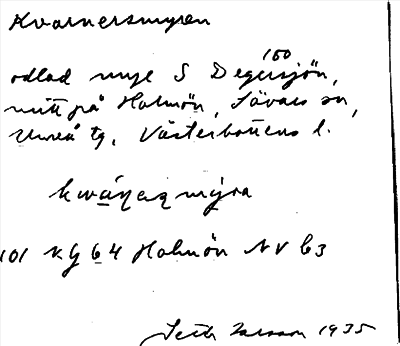 Kvarnersmyren
100
odlad myr S Degersjön,
mitt på Holmön, Sävars sn,
Umeå tg, Västerbottens l.
101 NG 64 Holmön NV b3
Larsson 1935